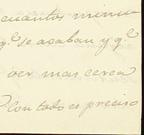 cuantos minu
q.e se acaban y q.e
ver mas cerca
Con todo es preciso